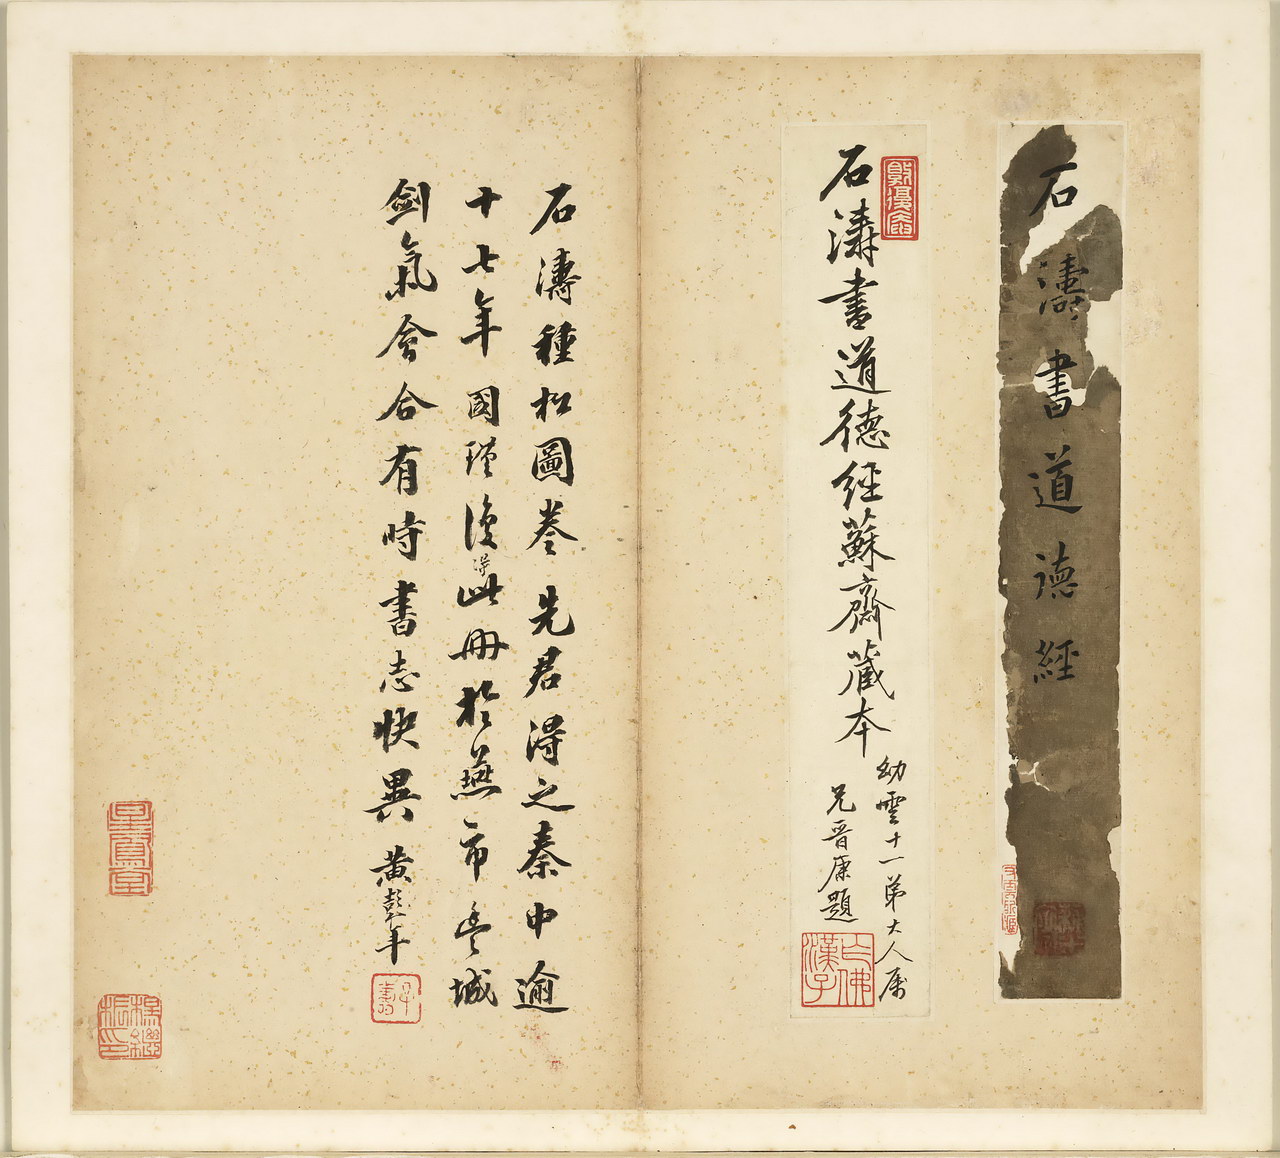 石濤書道德經
石濤書道德經蘇齋藏本
幼雲十一弟大人屬
兄晉康題
石濤種松圖卷先君得之秦中逾
十七年國瑾復得此冊於燕市豐城
劍氣會合有時書志快異 黃彭年